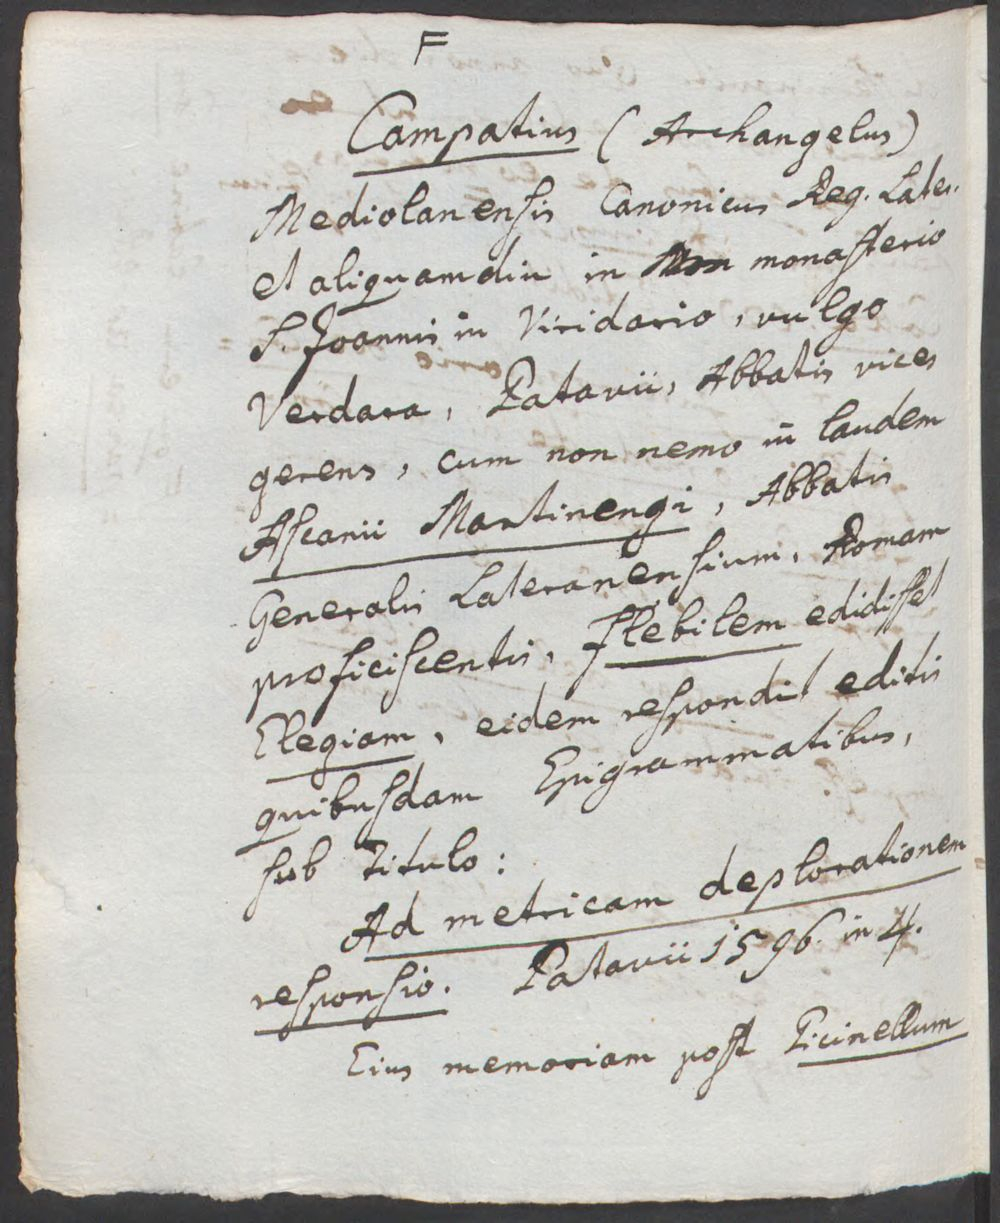 F
Campatius (Archangelus)
Mediolanensis Canonicus Reg. Later.
et aliquamdiu in monasterio
S. Joannis in Viridario, vulgo
Verdara, Patavii, Abbatis vices
gerens, cum non nemo in laudem
Ascanii Martinengi, Abbatis
Generalis Lateranensium, Romam
proficiscentis, flebilem edidisset
Elegiam, eidem respondit editis
quibusdam Epigrammatibus,
sub Titulo:
Ad metricam deplorationem
responsio. Patavii 1596. in 4.
Eius memoriam post Picinellum